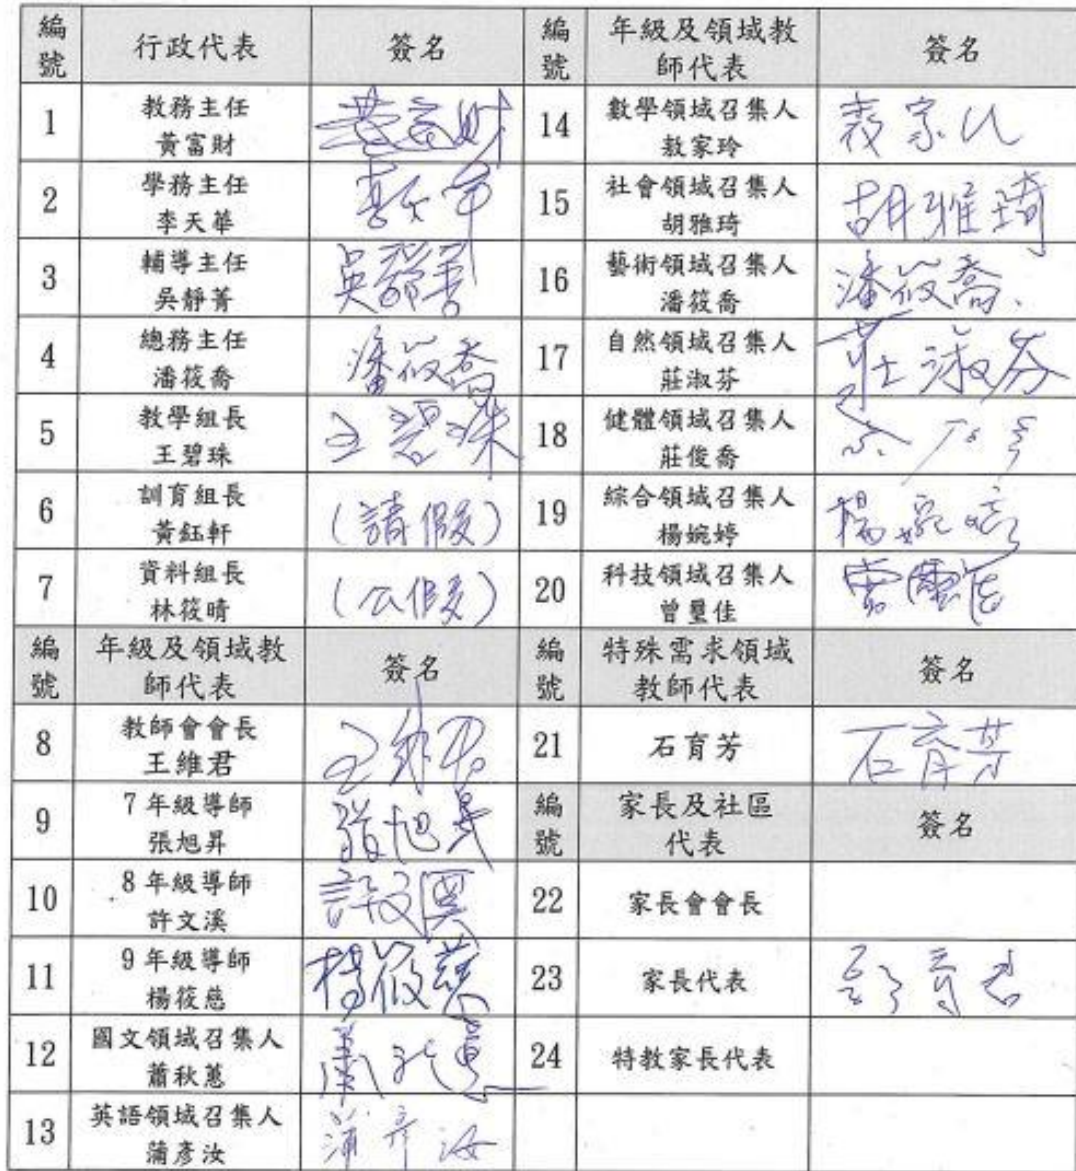 編號 行政代表 簽名 編號 年級及領域教師代表 簽名
1 教務主任 黃富財 黃富財 14 數學領域召集人 敖家玲
2 學務主任 李天華 李天華 15 社會領域召集人 胡雅琦 胡雅琦
3 輔導主任 吳靜菁 吳靜菁 16 藝術領域召集人 潘筱喬 潘筱喬
4 總務主任 潘筱喬 潘筱喬 17 自然領域召集人 莊淑芬 莊淑芬
5 教學組長 王碧珠 王碧珠 18 健體領域召集人 莊俊喬
6 訓育組長 黃鈺軒 (請假) 19 綜合領域召集人 楊婉婷 楊婉婷
7 資料組長 林筱晴 (公假) 20 科技領域召集人 曾璽佳
編號 年級及領域教師代表 簽名 編號 特殊需求領域教師代表 簽名
8 教師會會長 王維君 王維君 21 石育芳 石育芳
9 7年級導師 張旭昇 張旭昇 編號 家長及社區代表 簽名
10 8年級導師 許文溪 許文溪 22 家長會會長
11 9年級導師 楊筱慈 楊筱慈 23 家長代表
12 國文領域召集人 蕭秋蕙 24 特教家長代表
13 英語領域召集人 蒲彥汝 蒲彥汝